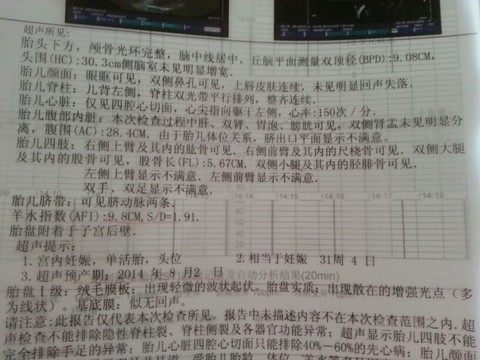 超声所见:
胎头下方, 颅骨光环完整, 脑中线居中, 丘脑平面测量双顶径(BPD):9.08CM,
头围(HC):30.3cm侧脑室未见明显增宽.
胎儿颜面: 眼眶可见, 双侧鼻孔可见, 上唇皮肤连续, 未见明显回声失落.
胎儿脊柱: 儿背左侧, 脊柱双光带平行排列, 整齐连续.
胎儿心脏: 仅见四腔心切面, 心尖指向躯干左侧, 心率:150次/分.
胎儿腹部内脏: 本次检查过程中肝、双肾、胃泡、膀胱可见, 双侧肾盂未见明显分
离, 腹围(AC):28.4CM. 由于胎儿体位关系, 脐出口平面显示不满意.
胎儿四肢: 右侧上臂及其内的肱骨可见, 右侧前臂及其内的尺桡骨可见, 双侧大腿
及其内的股骨可见, 股骨长(FL):5.67CM, 双侧小腿及其内的胫腓骨可见,
左侧上臂显示不满意, 左侧前臂显示不满意.
双手、双足显示不满意.
胎儿脐带: 可见脐动脉两条.
羊水指数(AFI):9.8CM, S/D=1.91.
胎盘附着于子宫后壁.
超声提示:
1. 宫内妊娠, 单活胎, 头位 2.相当于妊娠 31周 4 日
3. 超声预产期: 2014 年 8 月2 日
自动分析结果(20min)
胎盘Ⅰ级: 绒毛膜板: 出现轻微的波状起伏. 胎盘实质: 出现散在的增强光点 (多
为线状). 基底膜: 似无回声.
请注意:此报告仅代表本次检查所见. 报告中未描述内容不在本次检查范围之内. 超
声检查不能排除隐性脊柱裂、脊柱侧裂及各器官功能异常; 超声显示胎儿四肢不能
完全排除手足的异常; 胎儿心脏四腔心切面只能排除40%-60%的先心病; 胎儿颜面